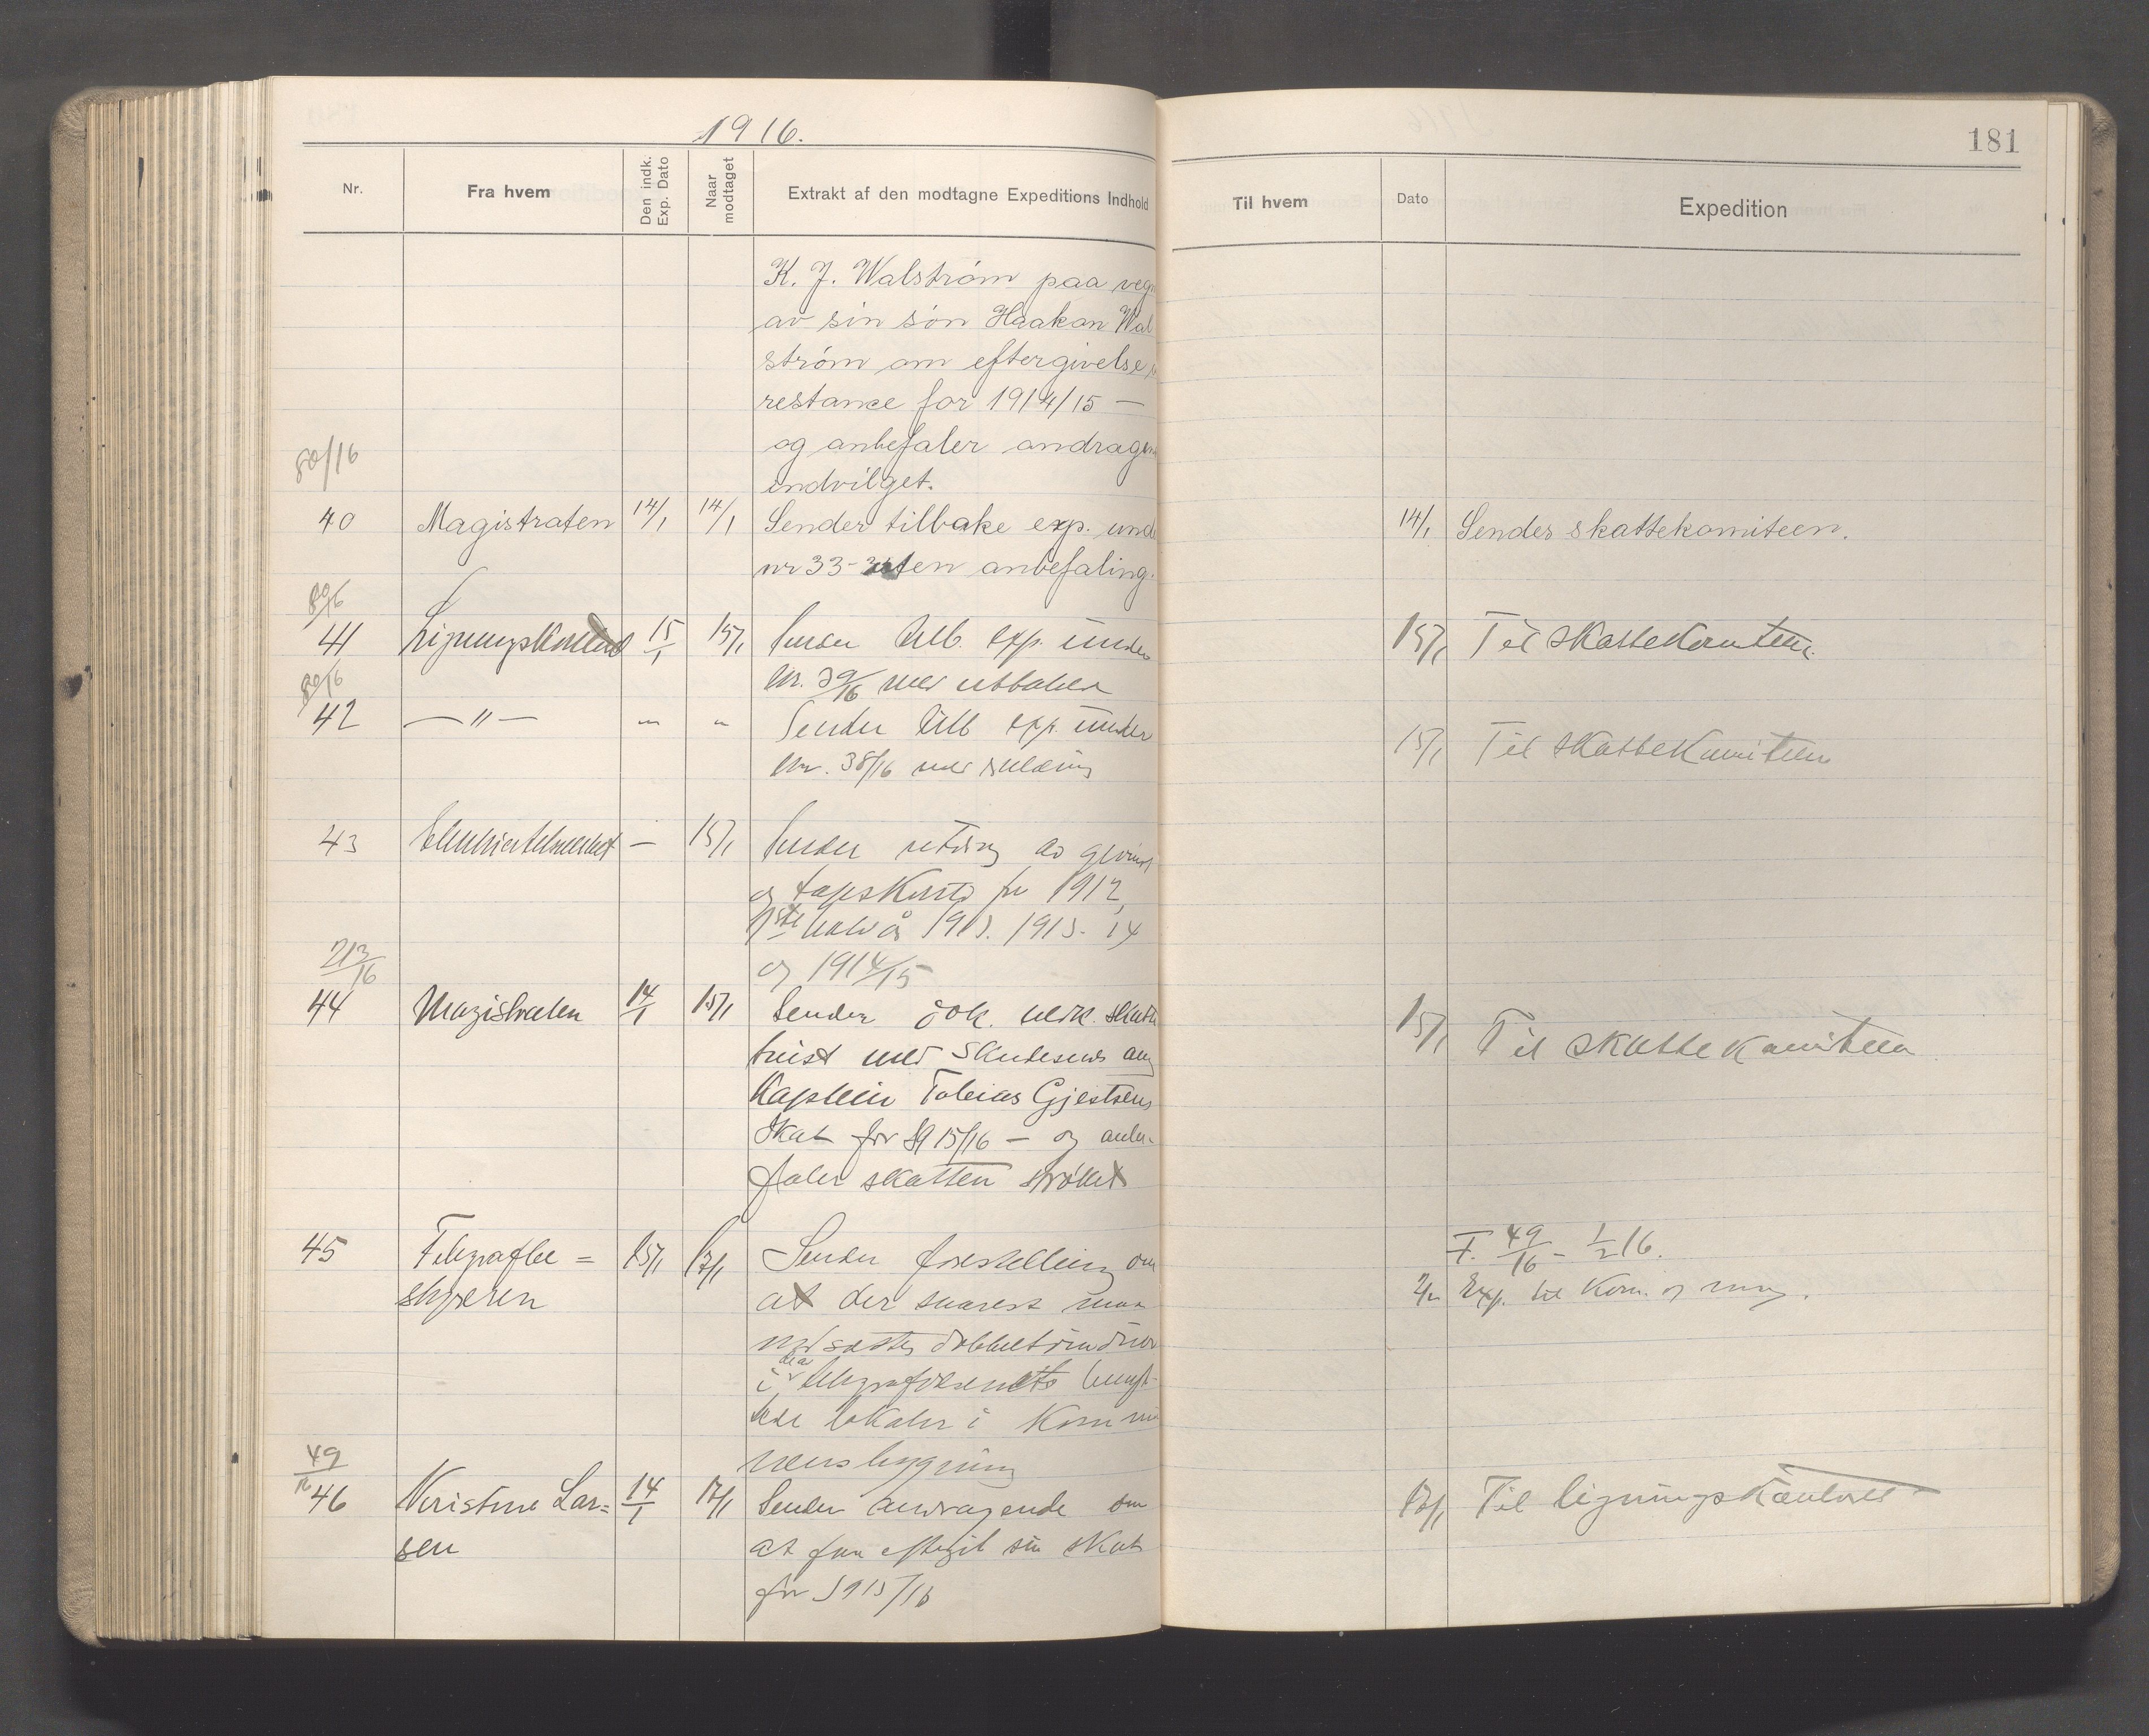 1916.
181
Nr.
Fra hvem
Den indk. Exp. Dato
Naar modtaget
Extrakt af den modtagne Expeditions Indhold
Til hvem
Dato
Expedition
K. J. Walström paa veg
av sin søn Haakon Wal
ström om eftergivelse
restance for 1914/15 —
og anbefaler andragen
indvilget.
80/16
40 Magistraten 14/1 14/1 Sender tilbake exp. unde
nr 33 - uten anbefaling.
14/1 Sendes skattekomiteen.
41 Ligningskontoret 15/1 15/1 Sender tilb. exp. under
nr. 39/16 med uttalelse
15/1 Til skattekomiteen.
80/16
42 — " — " " Sender tilb exp. under
nr. 38/16 med
15/1 Til skattekomiteen
43 — 15/1 Sender utdrag av gevinst
og tapskonto for 1912,
1ste halvår 1913. 1913-14
og 1914/15
213/16
44 Magistraten 14/1 15/1 Sender dok. vedk. skatte
tvist med Skudesnes ang
Kaptein Tobias Gjestsens
skat for 1915/16 — og anbe-
faler skatten strøket
15/1 Til skattekomiteen
45 Telegrafbe= 15/1 17/1 Sender forestilling om
styreren
at der snarest maa
indsættes dobbeltvinduer
i de av telegrafvesenets benyt-
tede lokaler i Kommu
nens bygning
F. 49/16 - 1/2 16.
2/2 Exp. til Kom. og mag.
49/16
46 Kristine Lar= 14/1 17/1 Sender andragende om
sen
at faa eftergit sin skat
for 1915/16
17/1 Til ligningskontoret